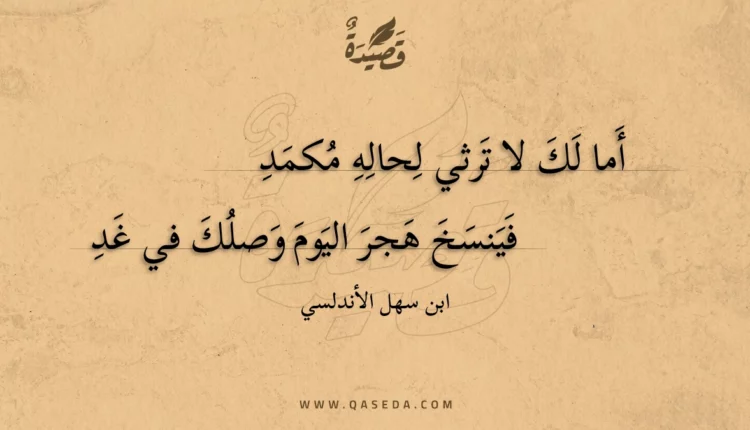 قَصِيدَةٌ
أَما لَكَ لا تَرثي لِحالِهِ مُكمَدِ
فَيَنسَخَ هَجرَ اليَومَ وَصلُكَ في غَدِ
ابن سهل الأندلسي
WWW.QASEDA.COM